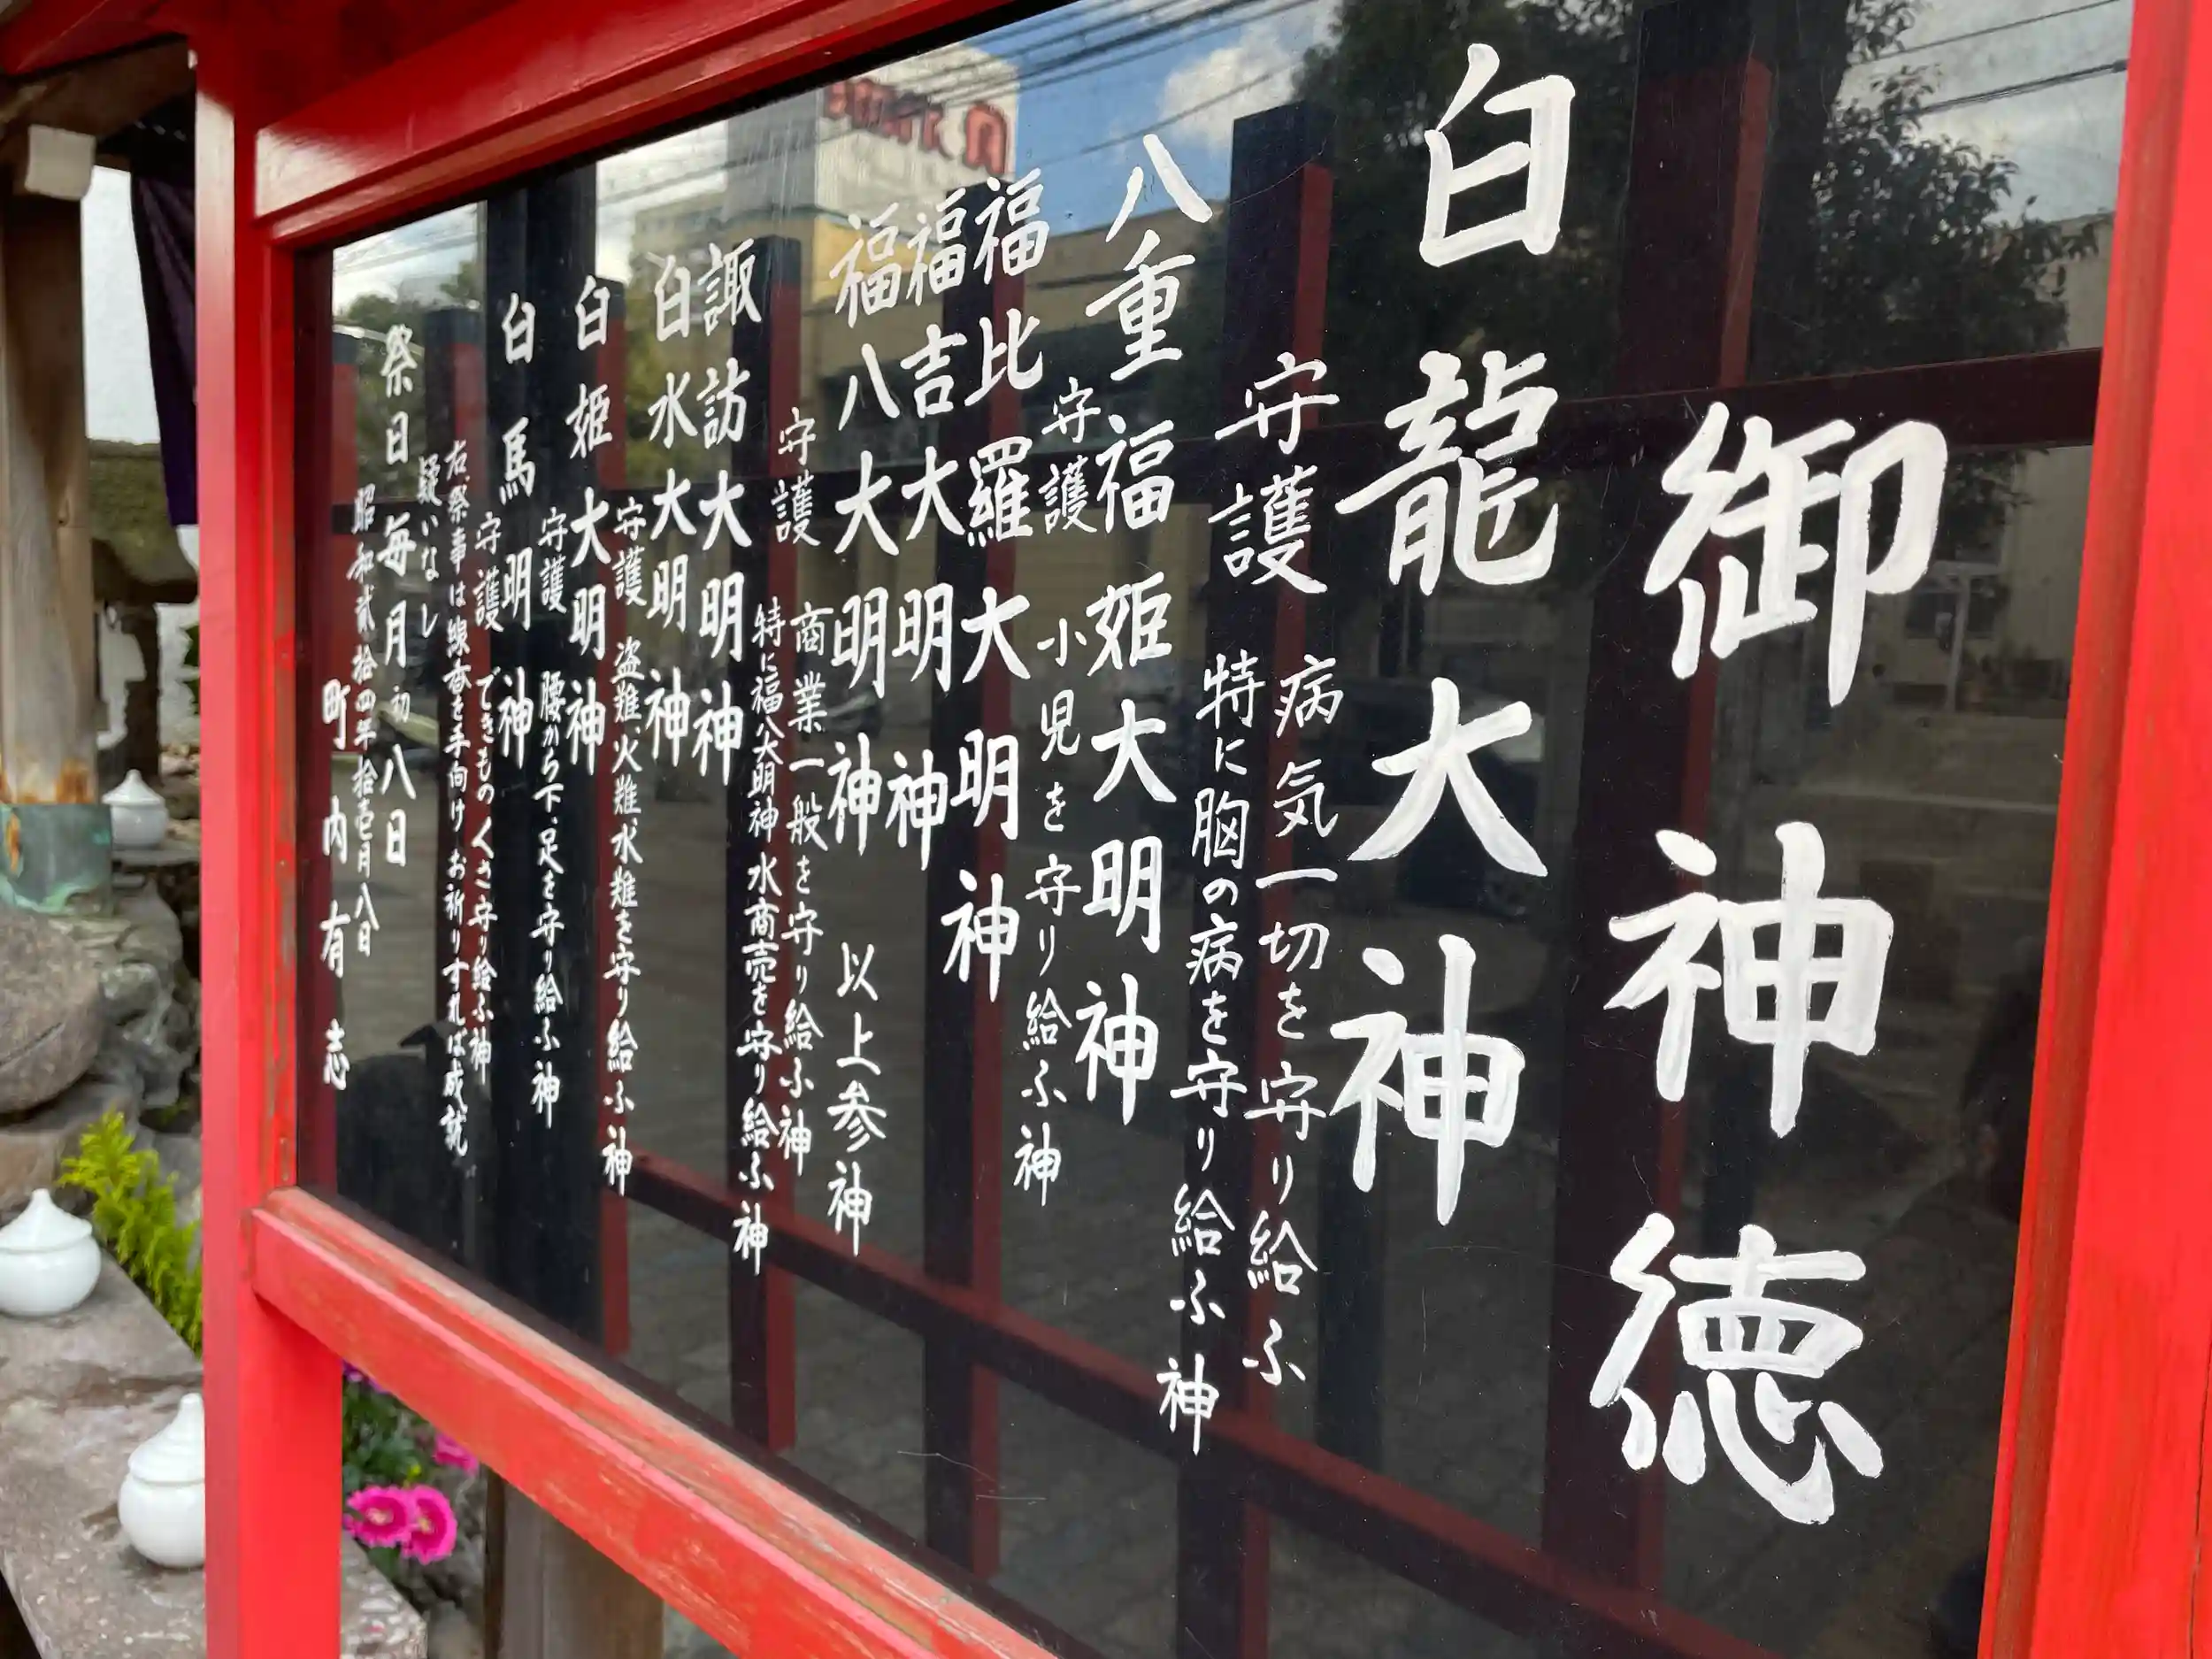 御神徳
白龍大神
守護 病気一切を守り給ふ
特に胸の病を守り給ふ神
八重福姫大明神
守護 小児を守り給ふ神
福比羅大明神
福吉大明神
福八大明神 以上参神
守護 商業一般を守り給ふ神
特に福八大明神水商売を守り給ふ神
諏訪大明神
白水大明神
守護 盗難、火難、水難を守り給ふ神
白姫大明神
守護 腰から下、足を守り給ふ神
白馬明神
守護 できものくさ守り給ふ神
右、祭事は線香を手向けお祈りすれば成就
疑いなし
祭日毎月初八日
昭和弐拾四年拾壱月八日
町内有志